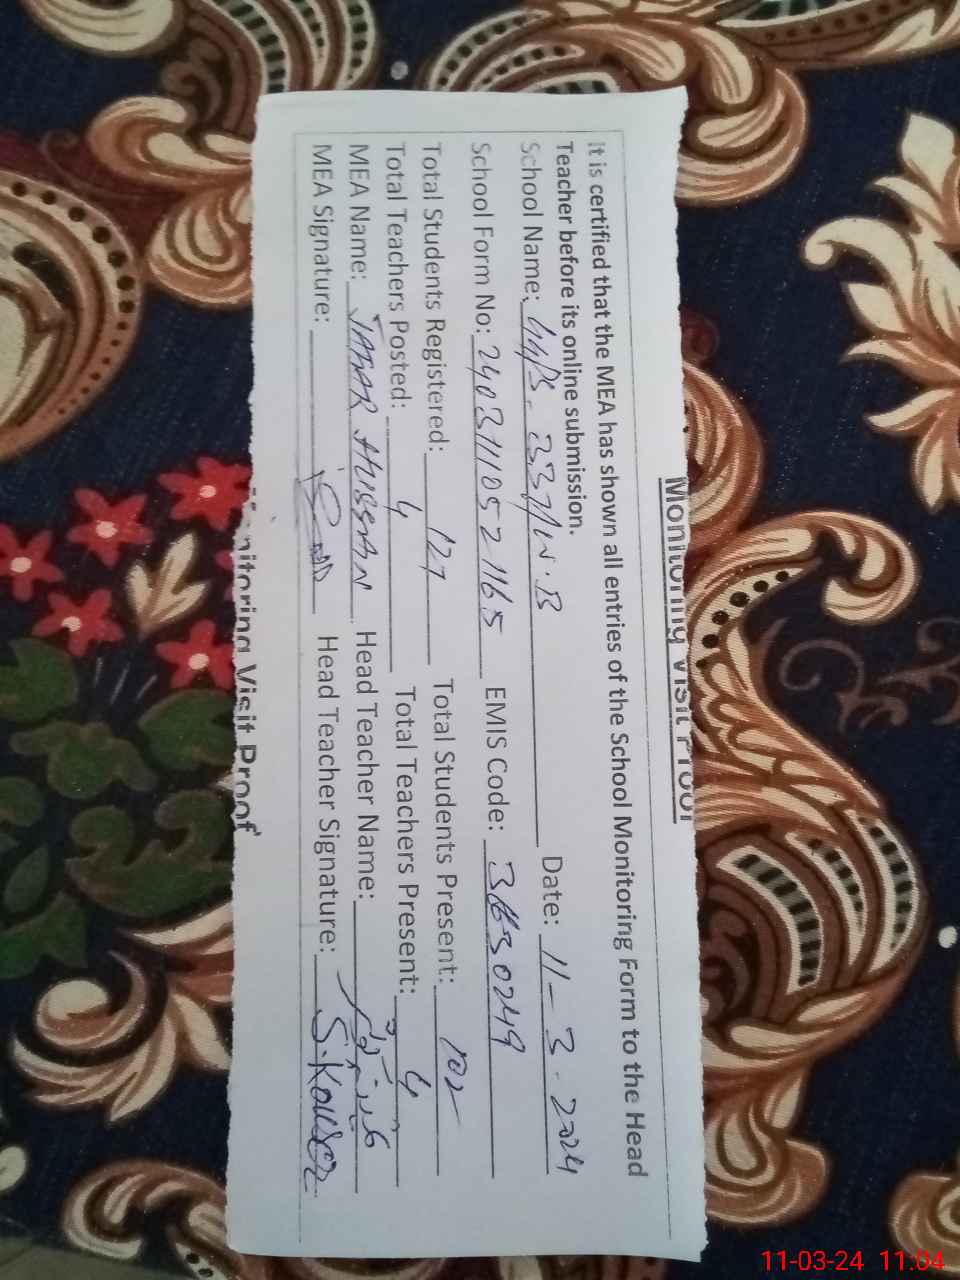 Monitoring Visit Proof
It is certified that the MEA has shown all entries of the School Monitoring Form to the Head
Teacher before its online submission.
School Name: GGPS. 337/W.B Date: 11-3-2024
School Form No: 24031110521165 EMIS Code: 36330249
Total Students Registered: 127 Total Students Present: 102
Total Teachers Posted: 4 Total Teachers Present: 4
MEA Name: JAFAR HUSSAIN Head Teacher Name:
MEA Signature: Head Teacher Signature: S.Kousar
Monitoring Visit Proof
11-03-24 11:04